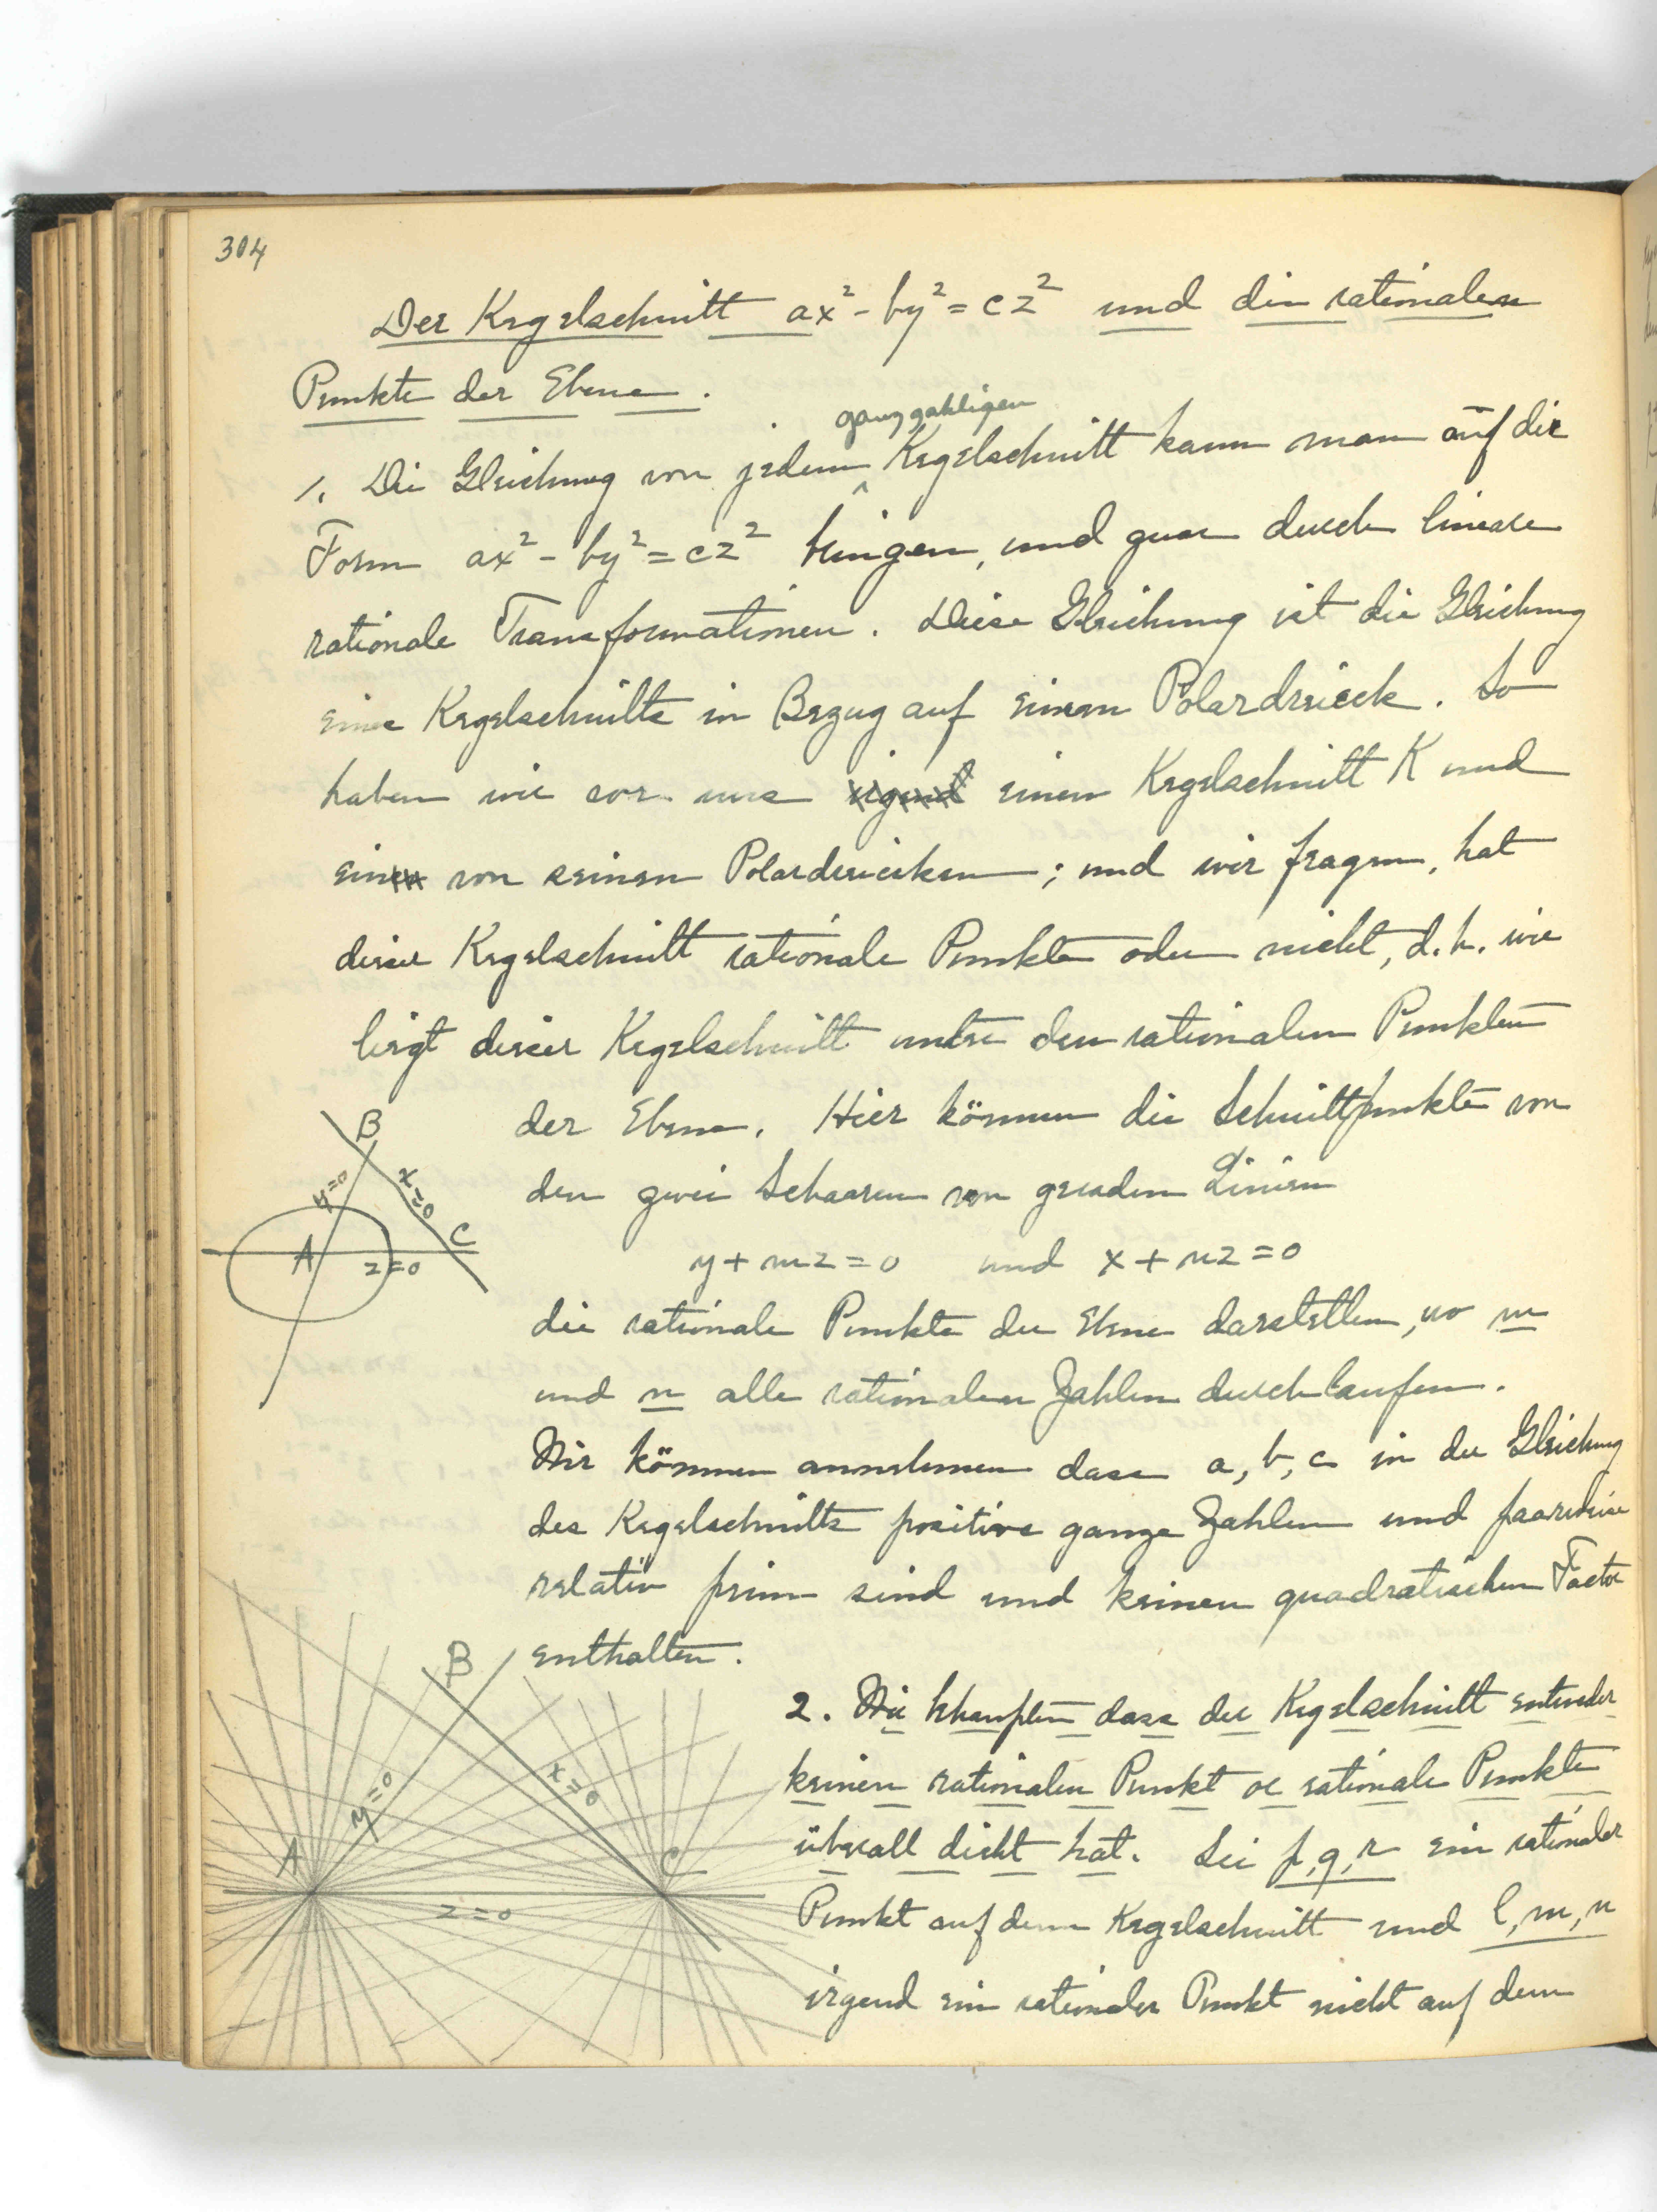 304
Der Kegelschnitt ax² - by² = cz² und die rationalen
Punkte der Ebene.
ganzzahligen
1. Die Gleichung von jedem Kegelschnitt kann man auf die
Form ax² - by² = cz² bringen, und zwar durch lineare
rationale Transformationen. Diese Gleichung ist die Gleichung
eines Kegelschnitts in Bezug auf einem Polardreieck. So
haben wir vor uns irgend einen Kegelschnitt K und
ein von seinen Polardreiecken; und wir fragen, hat
dieser Kegelschnitt rationale Punkte oder nicht, d.h. wie
liegt dieser Kegelschnitt unter den rationalen Punkten
der Ebene. Hier können die Schnittpunkte von
den zwei Schaaren von geraden Linien
y + mz = 0 und x + nz = 0
die rationale Punkte der Ebene darstellen, wo m
und n alle rationalen Zahlen durchlaufen.
Wir können annehmen dass a, b, c in der Gleichung
des Kegelschnitts positive ganze Zahlen und paarweise
relativ prim sind und keinen quadratischen Factor
enthalten.
B
y=0
x=0
A
C
z=0
2. Wir behaupten dass der Kegelschnitt entweder
keinen rationalen Punkt or rationale Punkte
überall dicht hat. Sei p, q, r ein rationaler
Punkt auf dem Kegelschnitt und l, m, n
irgend ein rationaler Punkt nicht auf dem
B
x=0
y=0
A
C
z=0